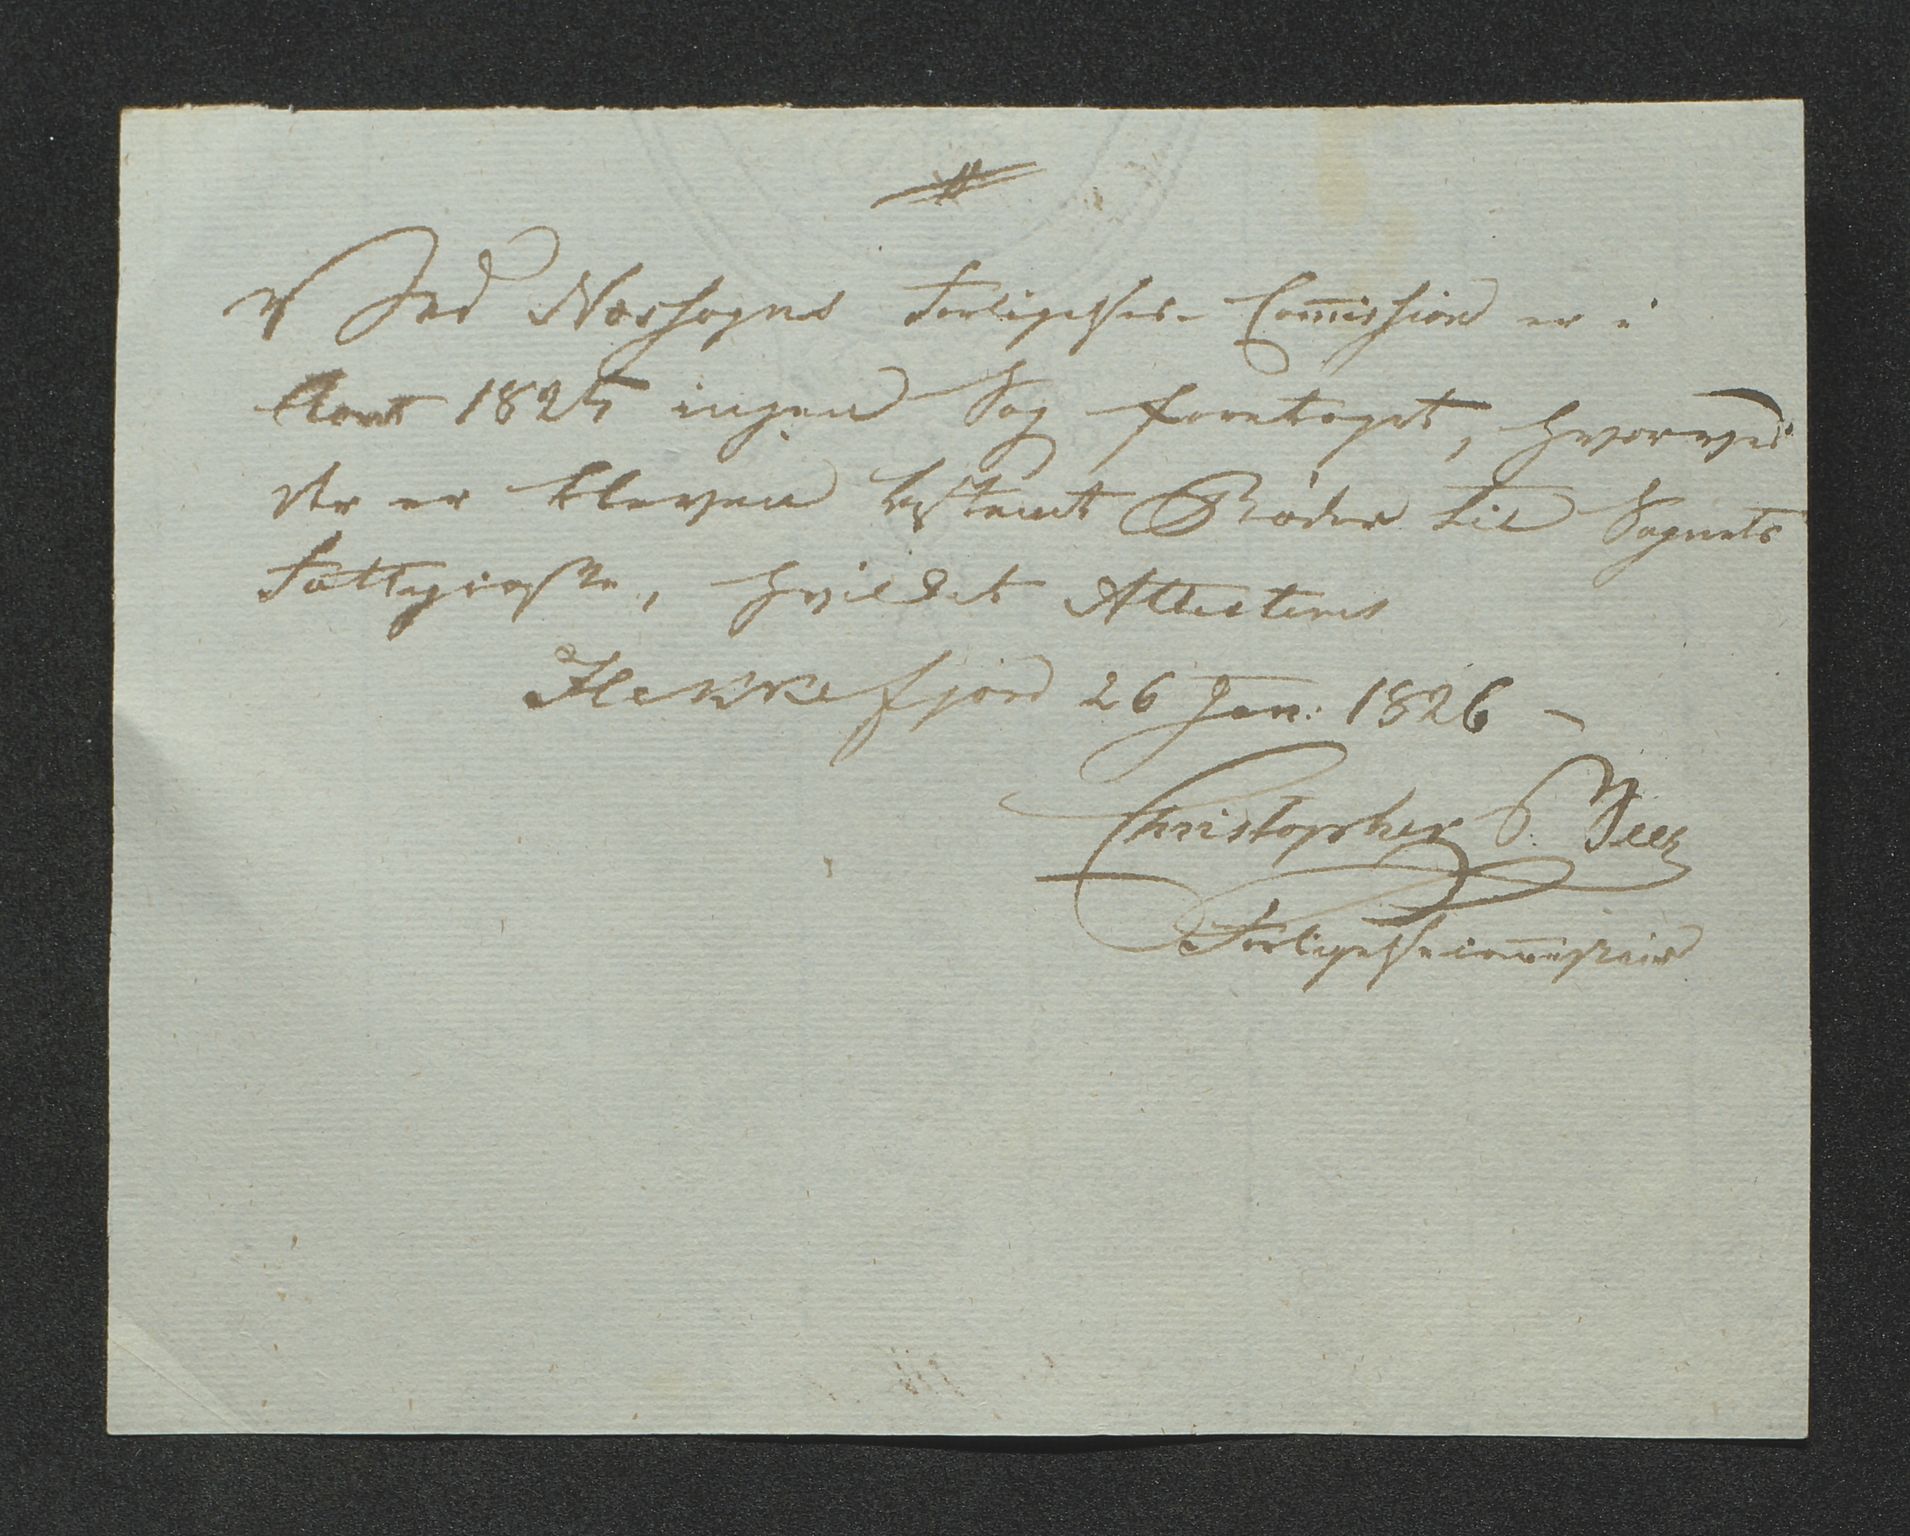 Ved Næssogns Forligelses Com̅ission er i
Aaret 1825 ingen Sag foretaget, hvorved
der er bleven bestemt Bøder til Sognets
Fattigcasse, hvilket Attesteres
Flekkefjord 26 Jan: 1826 –
Christopher
Forligelsescom̅issair